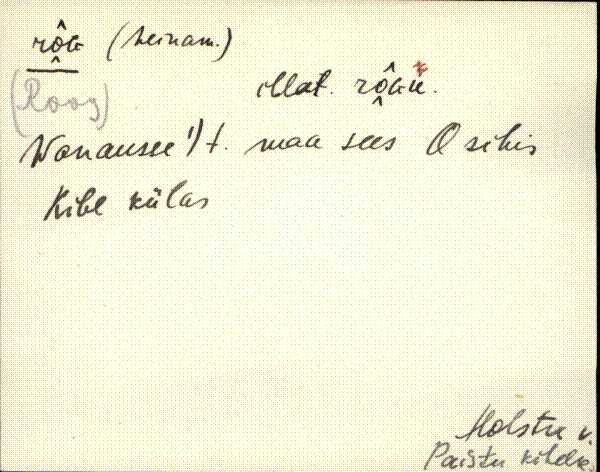 rôɢ (heinam.)
(Roog)
illat. rôɢu*.
Wanausse ¹) t. maa sees O sihis
Kibe külas
Holstre v.
Paistu kihelk.